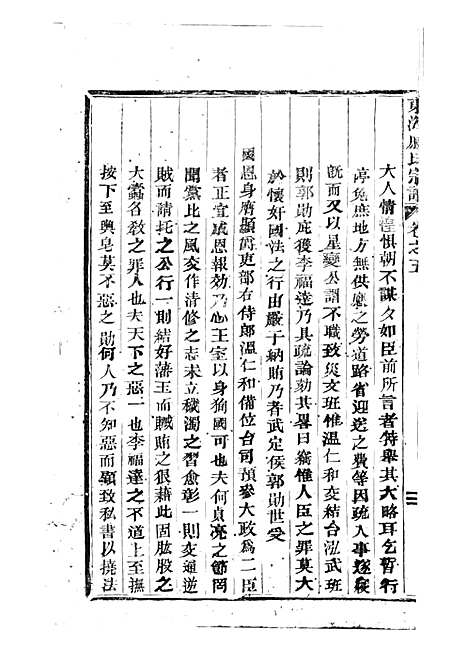 東海 氏宗譜 卷之五
大人情惶惧朝不謀夕如臣前所言者特舉其大略耳乞暫行
停免庶地方無供億之勞道路省迎送之費等因疏入事遂寢
旣而又以星變公謂不職致災文班惟溫仁和交結台泓武班
則郭勛庇後李福達乃具疏論劾其畧曰竊惟人臣之罪莫大
於懷奸國法之行由嚴于納賄乃者武定侯郭勛世受
國恩身膺顯爵吏部右侍郎溫仁和備位台司預參大政為二臣
者正宜感恩報効乃心王室以身狥國可也夫何貞亮之節罔
聞黨比之風交作清修之志未立穢濁之習愈彰一則交通逆
賊而請托之公行一則結好藩王而贓賄之狼藉此固肱股之
大蠹名教之罪人也夫天下之惡一也李福達之不道上至撫
按下至輿皂莫不惡之勛何人乃不知惡而顯致私書以撓法